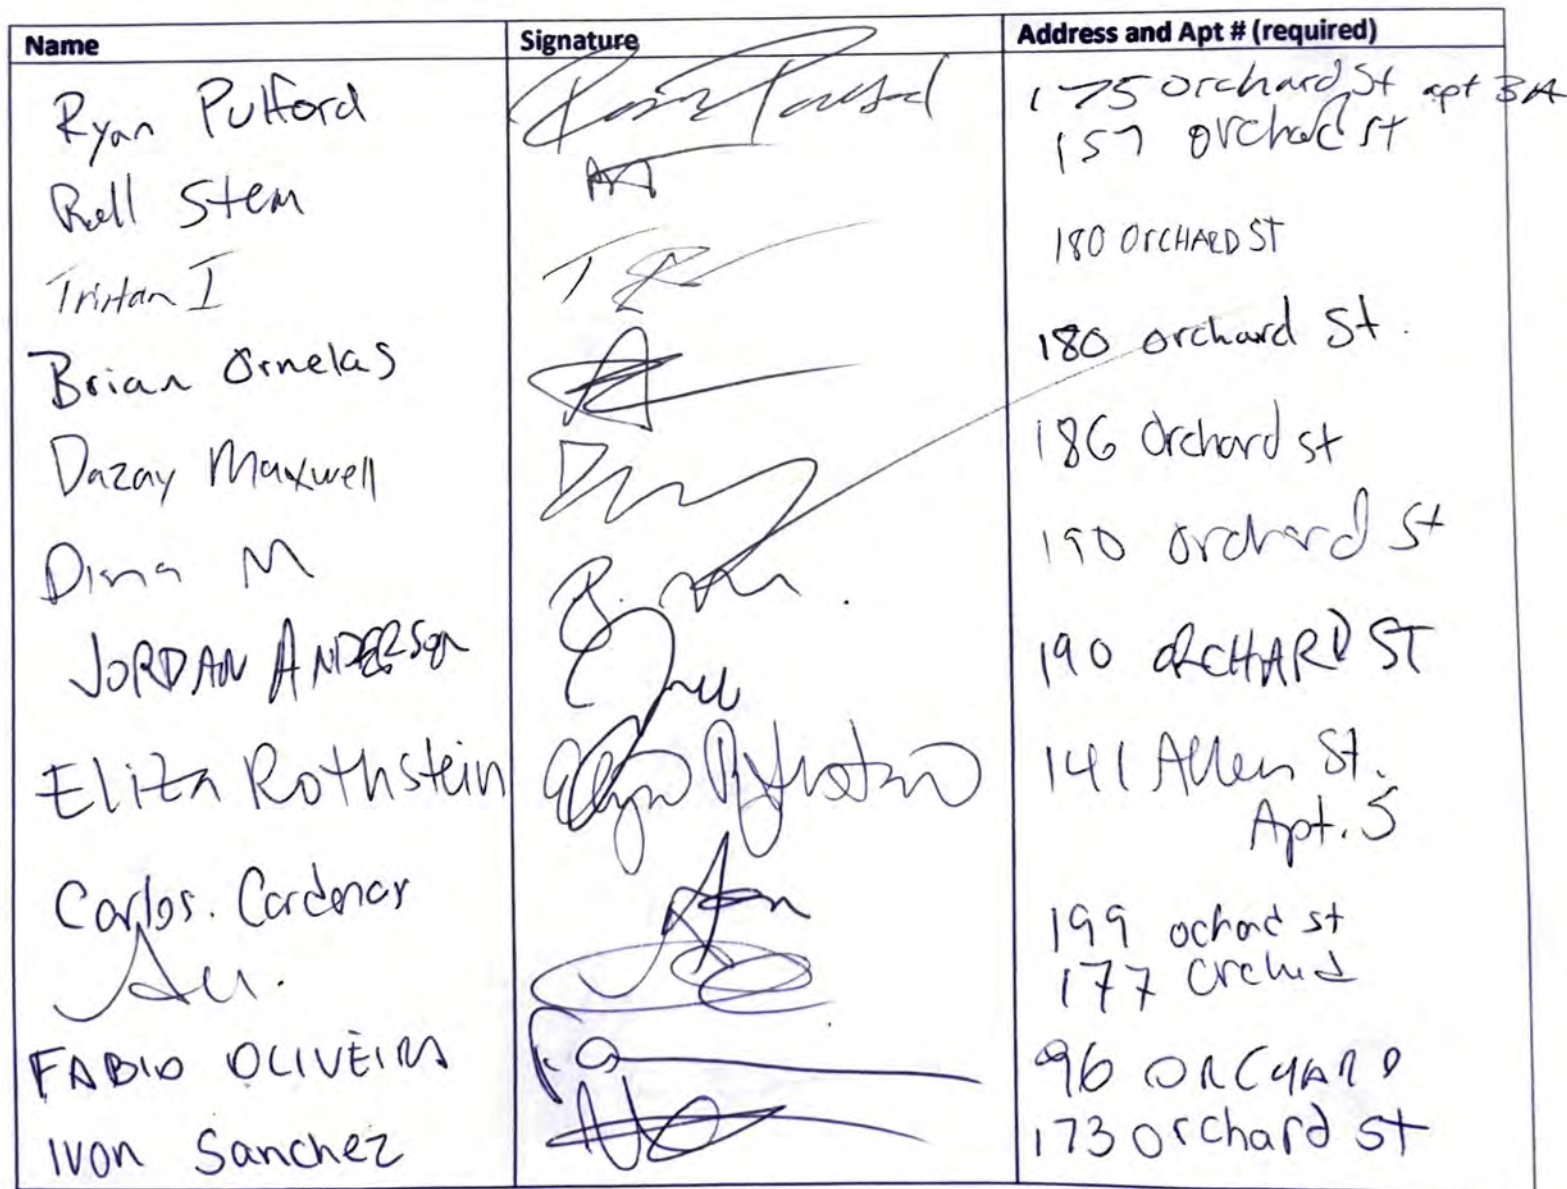 Name Signature Address and Apt # (required)
Ryan Pulford 175 orchard St apt 3A
157 orchard st
Stem
Tristan I 180 ORCHARD ST
Brian Ornelas 180 orchard St.
Dazay Maxwell 186 Orchard st
Dima M 190 orchard St
JORDAN ANDERSON 190 ORCHARD ST
Eliza Rothstein 141 Allen St.
Apt. 5
Carlos. Cardenas 199 ochard st
177
FABIO OLIVEIRA 96 ORCHARD
IVON Sanchez 173 orchard st